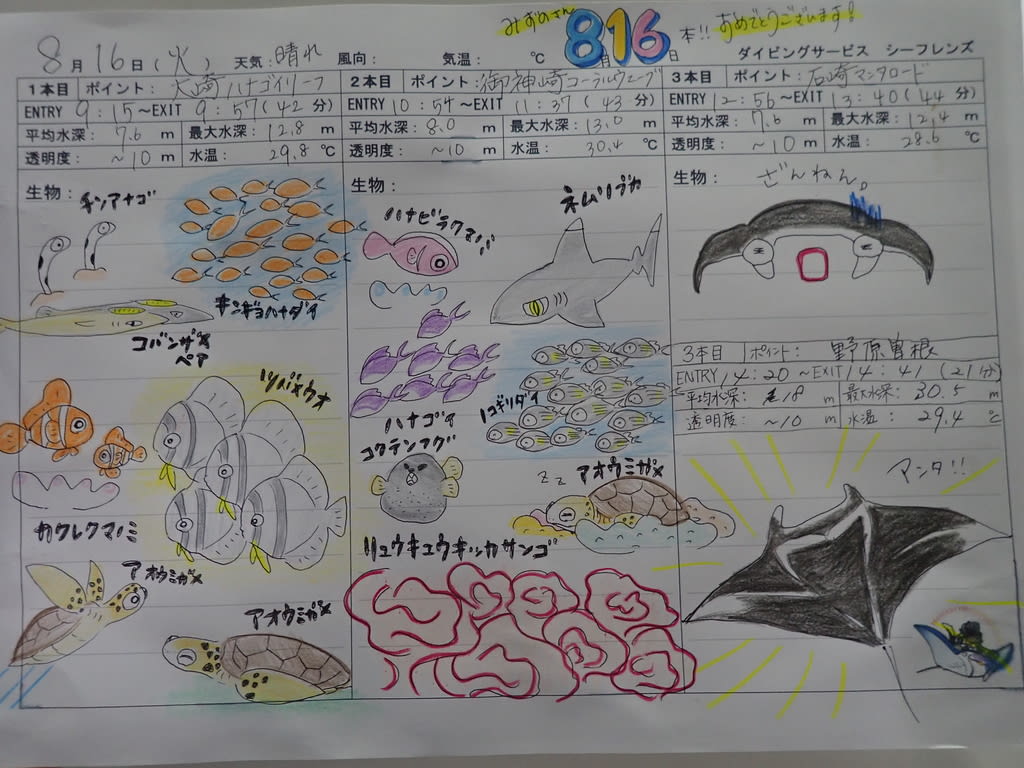 みずのさん 816本!! おめでとうございます!
8月16日(火) 天気:晴れ 風向: 気温: ℃ 月 日 ダイビングサービス シーフレンズ
1本目 ポイント: 大崎ハナゴイリーフ
ENTRY 9:15~EXIT 9:57(42分)
平均水深: 7.6 m 最大水深: 12.8 m
透明度: ~10 m 水温: 29.8 ℃
生物:
チンアナゴ
キンギョハナダイ
コバンザメ
ペア
ツバメウオ
カクレクマノミ
アオウミガメ
アオウミガメ
2本目 ポイント: 御神崎コーラルウェーブ
ENTRY 10:54~EXIT 11:37(43分)
平均水深: 8.0 m 最大水深: 13.0 m
透明度: ~10 m 水温: 30.4 ℃
生物:
ハナビラクマノミ
ネムリブカ
ハナゴイ
ノコギリダイ
コクテンフグ
zz アオウミガメ
リュウキュウキッカサンゴ
3本目 ポイント: 石崎マンタロード
ENTRY 12:56~EXIT 13:40(44分)
平均水深: 7.6 m 最大水深: 12.4 m
透明度: ~10 m 水温: 28.6 ℃
生物: ざんねん。
3本目 ポイント: 野原曽根
ENTRY 14:20~EXIT 14:41(21分)
平均水深: 18 m 最大水深: 30.5 m
透明度: ~10 m 水温: 29.4 ℃
マンタ!!